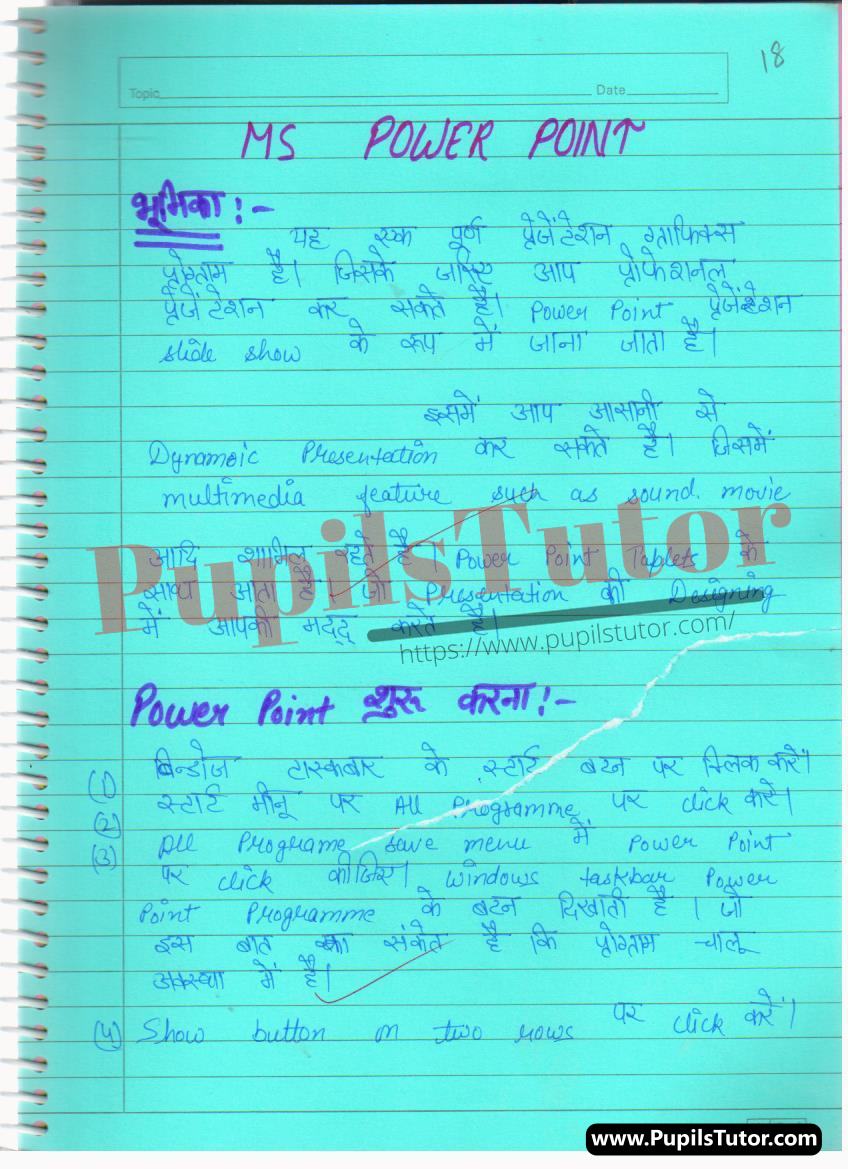 18
Topic Date
MS POWER POINT
भूमिका :-
यह एक पूर्ण प्रेजेंटेशन ग्राफिक्स
प्रोग्राम है। जिसके जरिए आप प्रोफेशनल
प्रेजेंटेशन कर सकते है। Power Point प्रेजेंटेशन
slide show के रूप में जाना जाता है।
इसमें आप आसानी से
Dynamoic Presentation कर सकते है। जिसमें
multimedia feature such as sound. movie
आदि शामिल रहते है। Power Point Tablets के
साथ आता है। जो Presentation की Designing
में आपकी मदद् करते है।
PupilsTutor
https://www.pupilstutor.com/
Power Point शुरू करना :-
(1) विन्डोज टास्कबार के स्टार्ट बटन पर क्लिक करें।
(2) स्टार्ट मीनू पर All Programme पर click करें।
(3) All Programe save menu में Power Point
पर click कीजिए। windows taskbar Power
Point Programme के बटन दिखाती है। जो
इस बात का संकेत है कि प्रोग्राम चालू
अवस्था में है।
(4) Show button on two rows पर click करें।
www.PupilsTutor.com